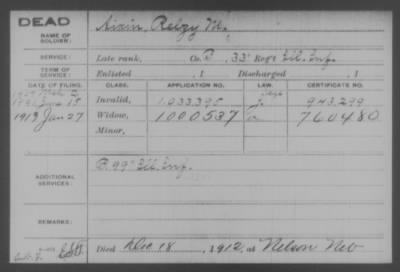 DEAD
NAME OF SOLDIER:
SERVICE: Late rank, Co. B, 33 Reg't Ill. Inf.
TERM OF SERVICE: Enlisted , 1 Discharged , 1
DATE OF FILING. CLASS. APPLICATION NO. LAW. CERTIFICATE NO.
Invalid, 1.033.395 943.299
1913 Jan 27 Widow, 1000537 760480
Minor,
ADDITIONAL SERVICES: B. 99" Ill. Inf.
REMARKS:
Died Dec 18, 1912, at Nelson Neb